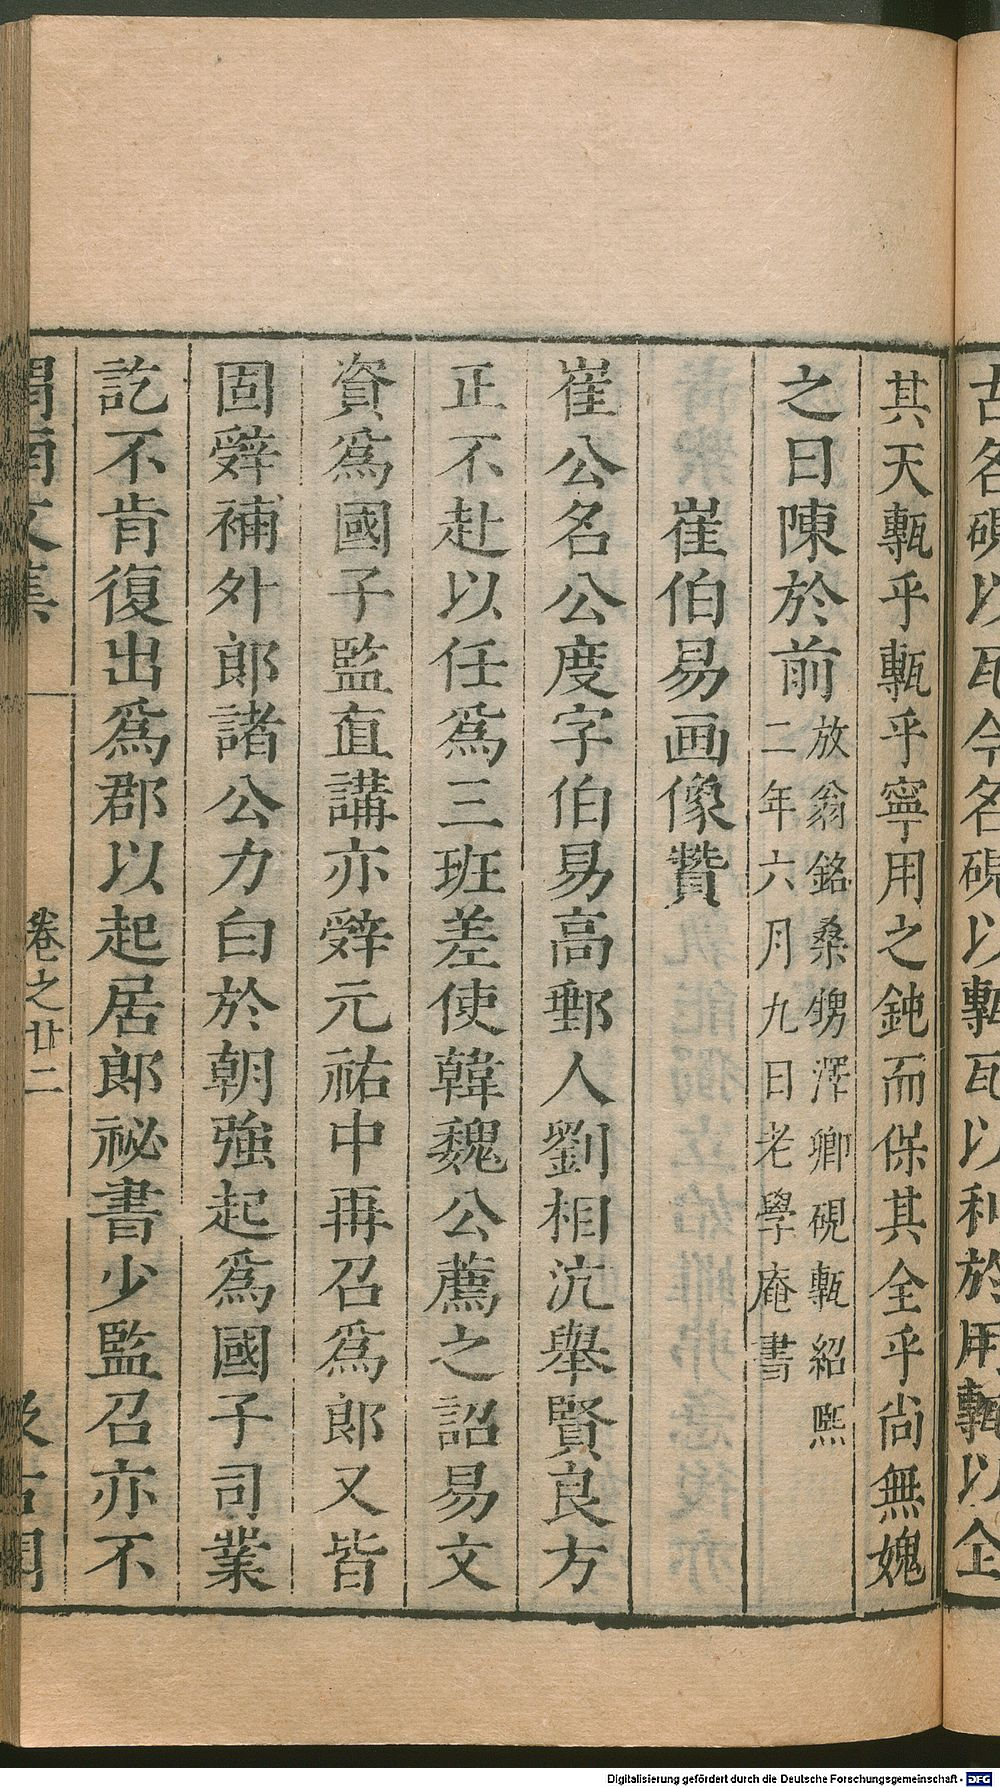 古名硯以瓦今名硯以甎瓦以利於用甎以全
其天甎乎甎乎寧用之鈍而保其全乎尚無媿
之日陳於前放翁銘桑甥澤卿硯甎紹熙
二年六月九日老學庵書
崔伯易画像贊
崔公名公度字伯易高郵人劉相沆舉賢良方
正不赴以任爲三班差使韓魏公薦之詔易文
資爲國子監直講亦辤元祐中再召爲郎又皆
固辤補外郎諸公力白於朝強起爲國子司業
訖不肯復出爲郡以起居郎祕書少監召亦不
渭南文集 卷之廿二 汲古閣
Digitalisierung gefördert durch die Deutsche Forschungsgemeinschaft - DFG